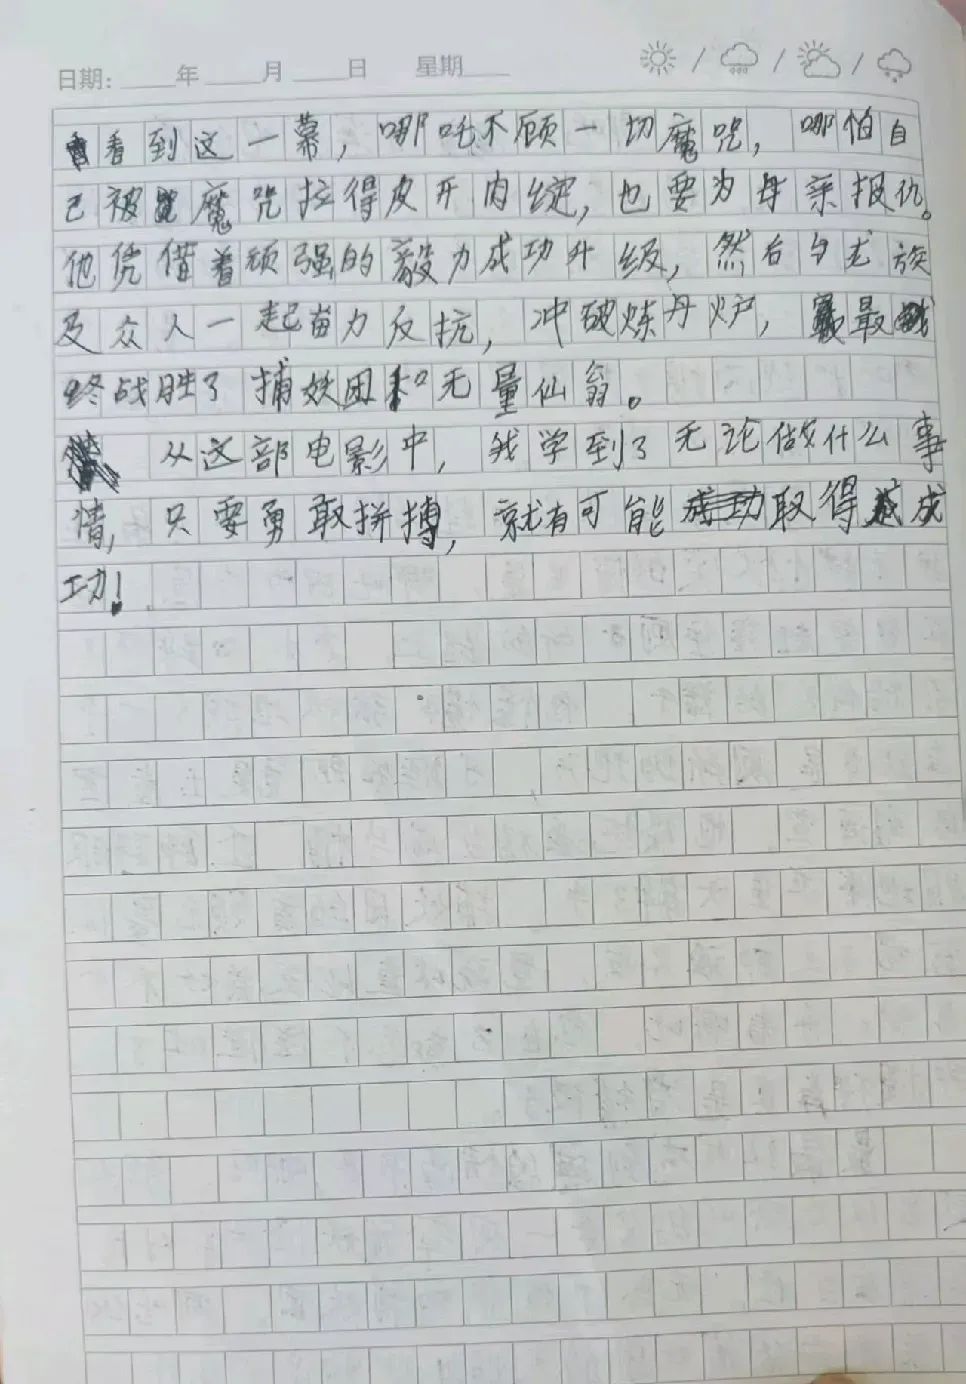 日期：____年____月____日 星期____
看到这一幕，哪吒不顾一切魔咒，哪怕自
己被魔咒拉得皮开肉绽，也要为母亲报仇。
他凭借着顽强的毅力成功升级，然后与龙族
及众人一起奋力反抗，冲破炼丹炉，最
终战胜了捕妖团和无量仙翁。
从这部电影中，我学到了无论做什么事
情，只要勇敢拼搏，就有可能取得成
功！